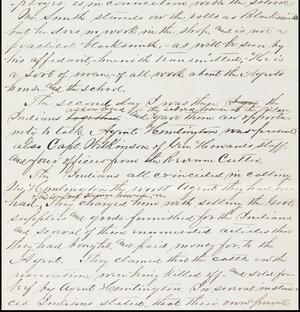 ployes in connection with the school
Mr Smith stands on the rolls as Blacksmith
but he does no work in the shop and is not a
practical blacksmith - as will be seen by
his affidavit herewith transmitted. He is
a sort of man-of-all work about the Agents
house and the school.
The second day I was there
Indians together and gave them an opportu-
nity to talk Agent Huntington was present
also Capt Wilkinson of Gen Howards staff
and four officers from the Revenue Cutter.
The Indians all coincided in calling
Mr Huntington the worst agent they had ever
had; charged him with selling the Govt
supplies and goods furnished for the Indians
and several of them enumerated articles that
they had bought and paid money for to the
Agent. They claimed that the cattle on the
reservation were being killed off and sold for
beef by Agent Huntington In several instan-
ces Indians stated, that their own private